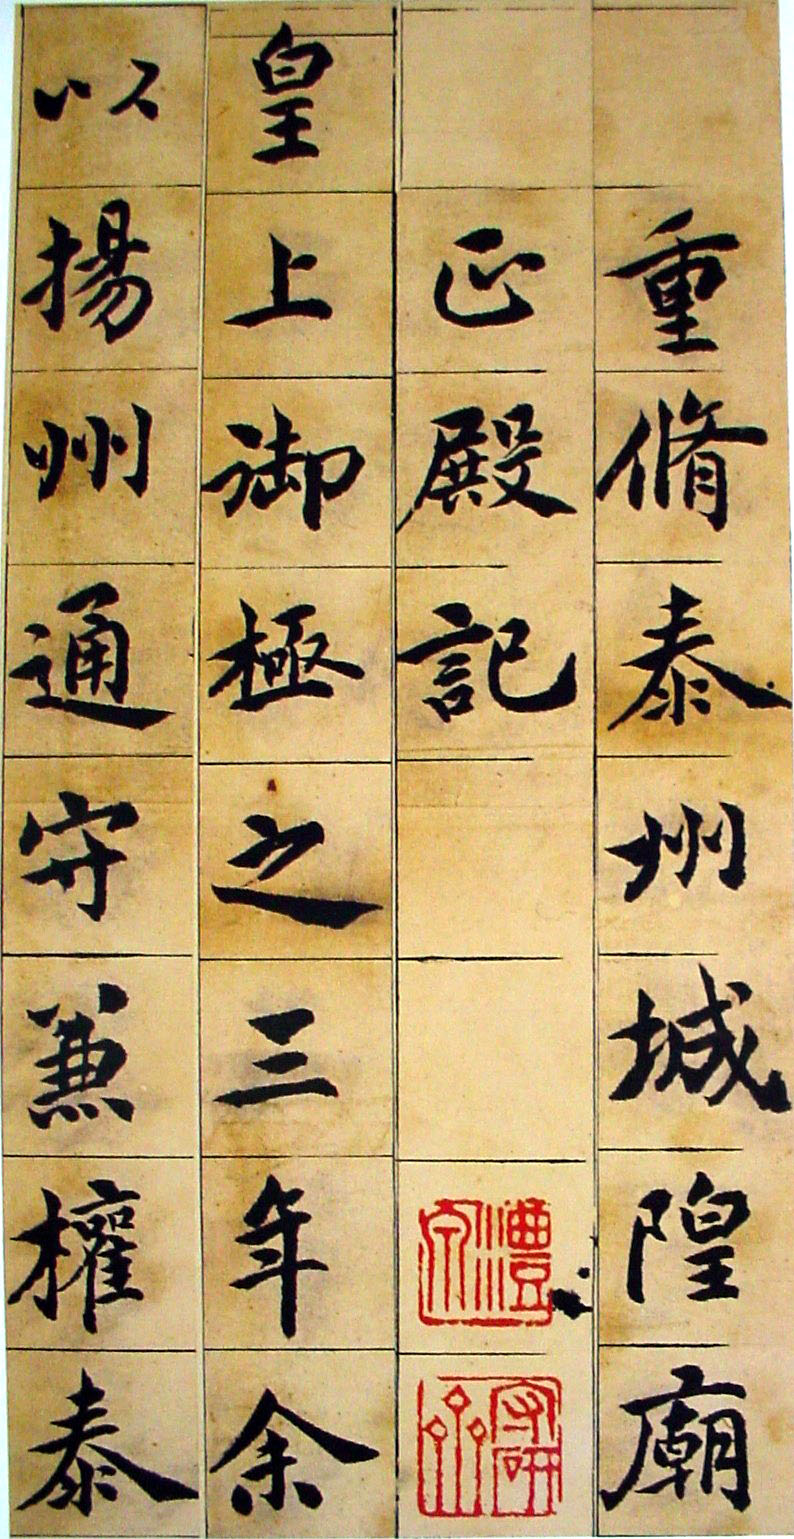 重脩泰州城隍廟
正殿記
皇上御極之三年余
以揚州通守兼權泰